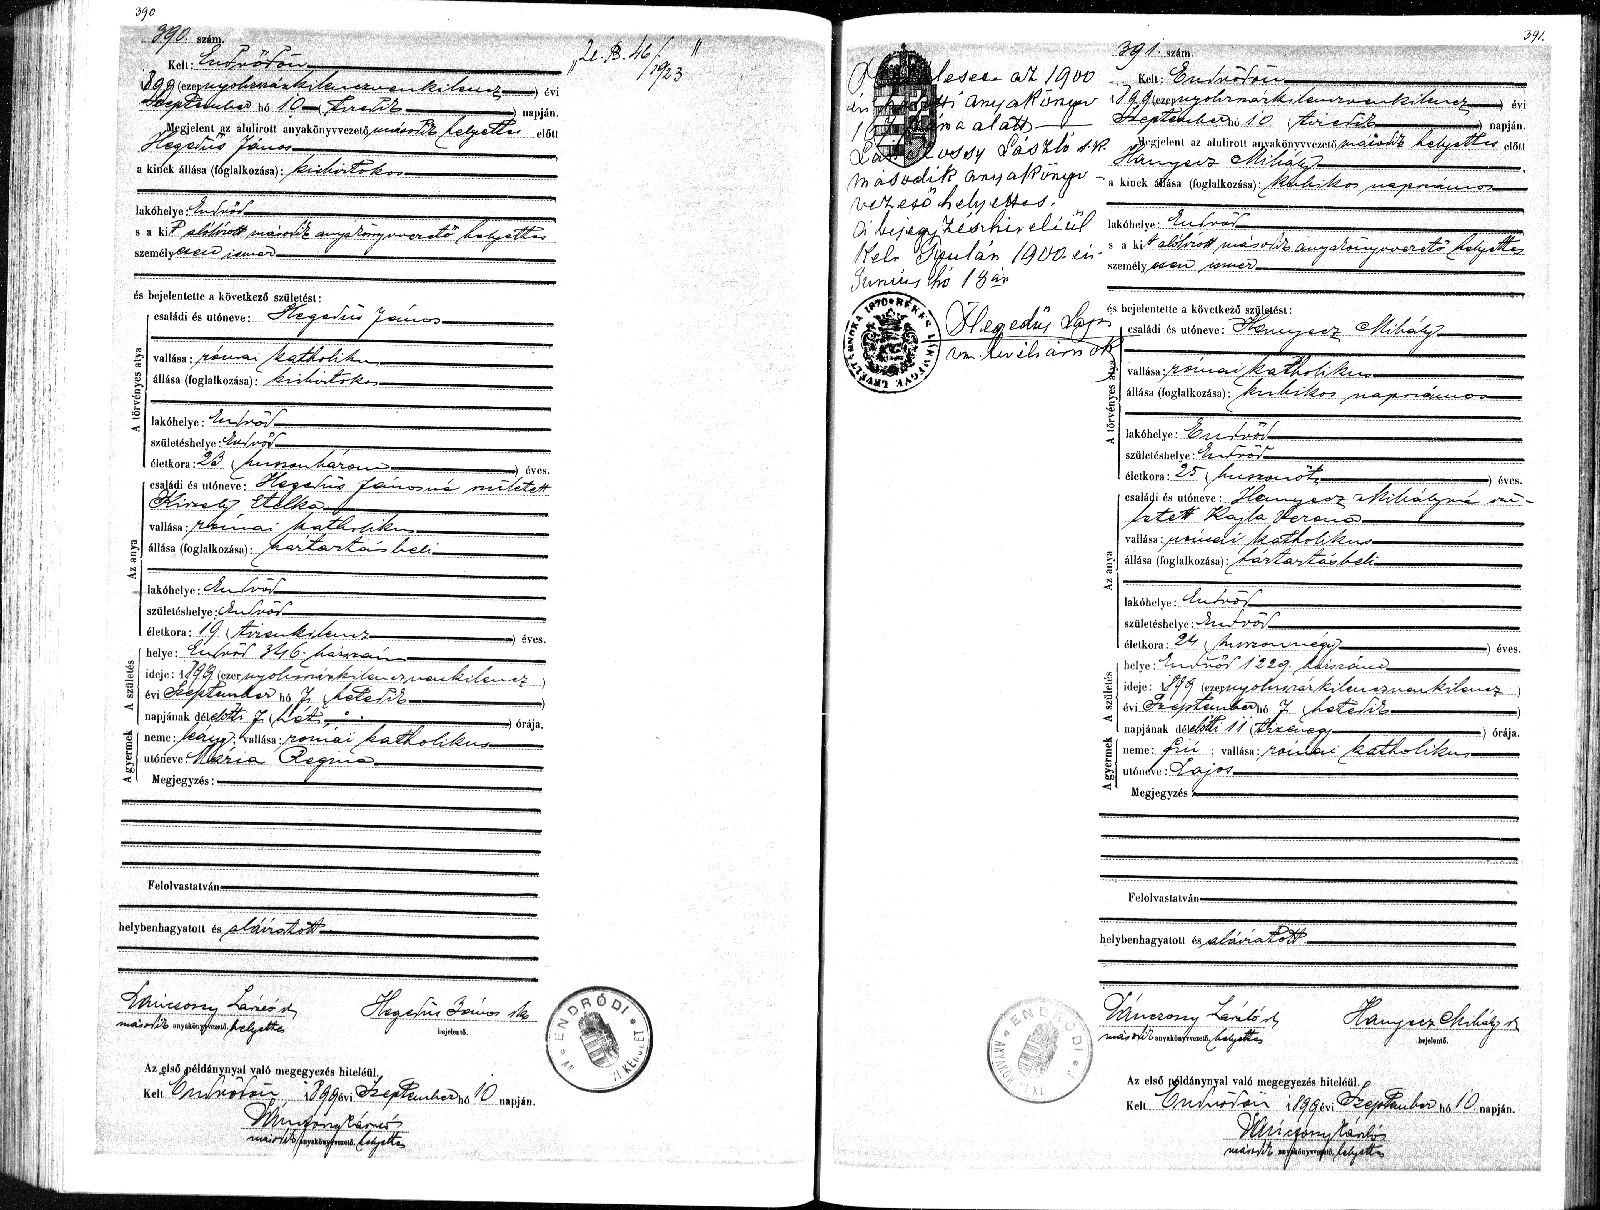 390
390. szám.
Kelt: Endrődön
1899 (ezernyolczszázkilenczvenkilencz) évi
Szeptember hó 10 (tizedik) napján.
Megjelent az alulirott anyakönyvvezető második helyettes előtt
Hegedüs János
a kinek állása (foglalkozása):
lakóhelye: Endrőd
s a kit alólirott második anyakönyvvezető helyettes
személyesen ismer
és bejelentette a következő születést:
A törvényes atya
családi és utóneve: Hegedüs János
vallása: római katholikus
állása (foglalkozása):
lakóhelye: Endrőd
születéshelye: Endrőd
életkora: 23 (huszonhárom) éves.
Az anya
családi és utóneve: Hegedüs Jánosné született
Etelka
vallása: római katholikus
állása (foglalkozása): háztartásbeli
lakóhelye: Endrőd
születéshelye: Endrőd
életkora: 19 (tizenkilencz) éves.
A születés
helye: Endrőd 346. házszám
ideje: 1899 (ezernyolczszázkilenczvenkilencz)
évi Szeptember hó 7 (hetedik)
napjának délelőtti 7 (hét) órája.
A gyermek
neme: leány; vallása: római katholikus
utóneve: Mária Regina
Megjegyzés:
Felolvastatván
helybenhagyatott és aláiratott
Dáncsony László
második anyakönyvvezető, helyettes
Hegedüs János sk
bejelentő.
Az első példánynyal való megegyezés hiteléül.
Kelt Endrődön, 1899 évi Szeptember hó 10 napján.
Dáncsony László
második anyakönyvvezető, helyettes
46/1923
ENDRŐDI
391.
az 1900
anyakönyv
alatt
László sk
második anyakönyv-
vezető helyettes.
A bejegyzés hiteléül
Kelt Gyulán 1900. évi
Junius hó 18án
Hegedüs Lajos
vm. levéltárnok
391. szám.
Kelt: Endrődön
1899 (ezernyolczszázkilenczvenkilencz) évi
Szeptember hó 10 (tizedik) napján.
Megjelent az alulirott anyakönyvvezető második helyettes előtt
Hanyecz Mihály
a kinek állása (foglalkozása): kubikos napszámos
lakóhelye: Endrőd
s a kit alólirott második anyakönyvvezető helyettes
személyesen ismer
és bejelentette a következő születést:
A törvényes atya
családi és utóneve: Hanyecz Mihály
vallása: római katholikus
állása (foglalkozása): kubikos napszámos
lakóhelye: Endrőd
születéshelye: Endrőd
életkora: 25 (huszonöt) éves.
Az anya
családi és utóneve: Hanyecz Mihályné szü-
letett Kajla Verona
vallása: római katholikus
állása (foglalkozása): háztartásbeli
lakóhelye: Endrőd
születéshelye: Endrőd
életkora: 24 (huszonnégy) éves.
A születés
helye: Endrőd 1229. házszám
ideje: 1899 (ezernyolczszázkilenczvenkilencz)
évi Szeptember hó 7 (hetedik)
napjának délelőtti 11 (tizenegy) órája.
A gyermek
neme: fiú; vallása: római katholikus
utóneve: Lajos
Megjegyzés:
Felolvastatván
helybenhagyatott és aláiratott
Dáncsony László
második anyakönyvvezető, helyettes
Hanyecz Mihály
bejelentő.
Az első példánynyal való megegyezés hiteléül.
Kelt Endrődön 1899 évi Szeptember hó 10 napján.
Dáncsony László
második anyakönyvvezető, helyettes
ENDRŐDI